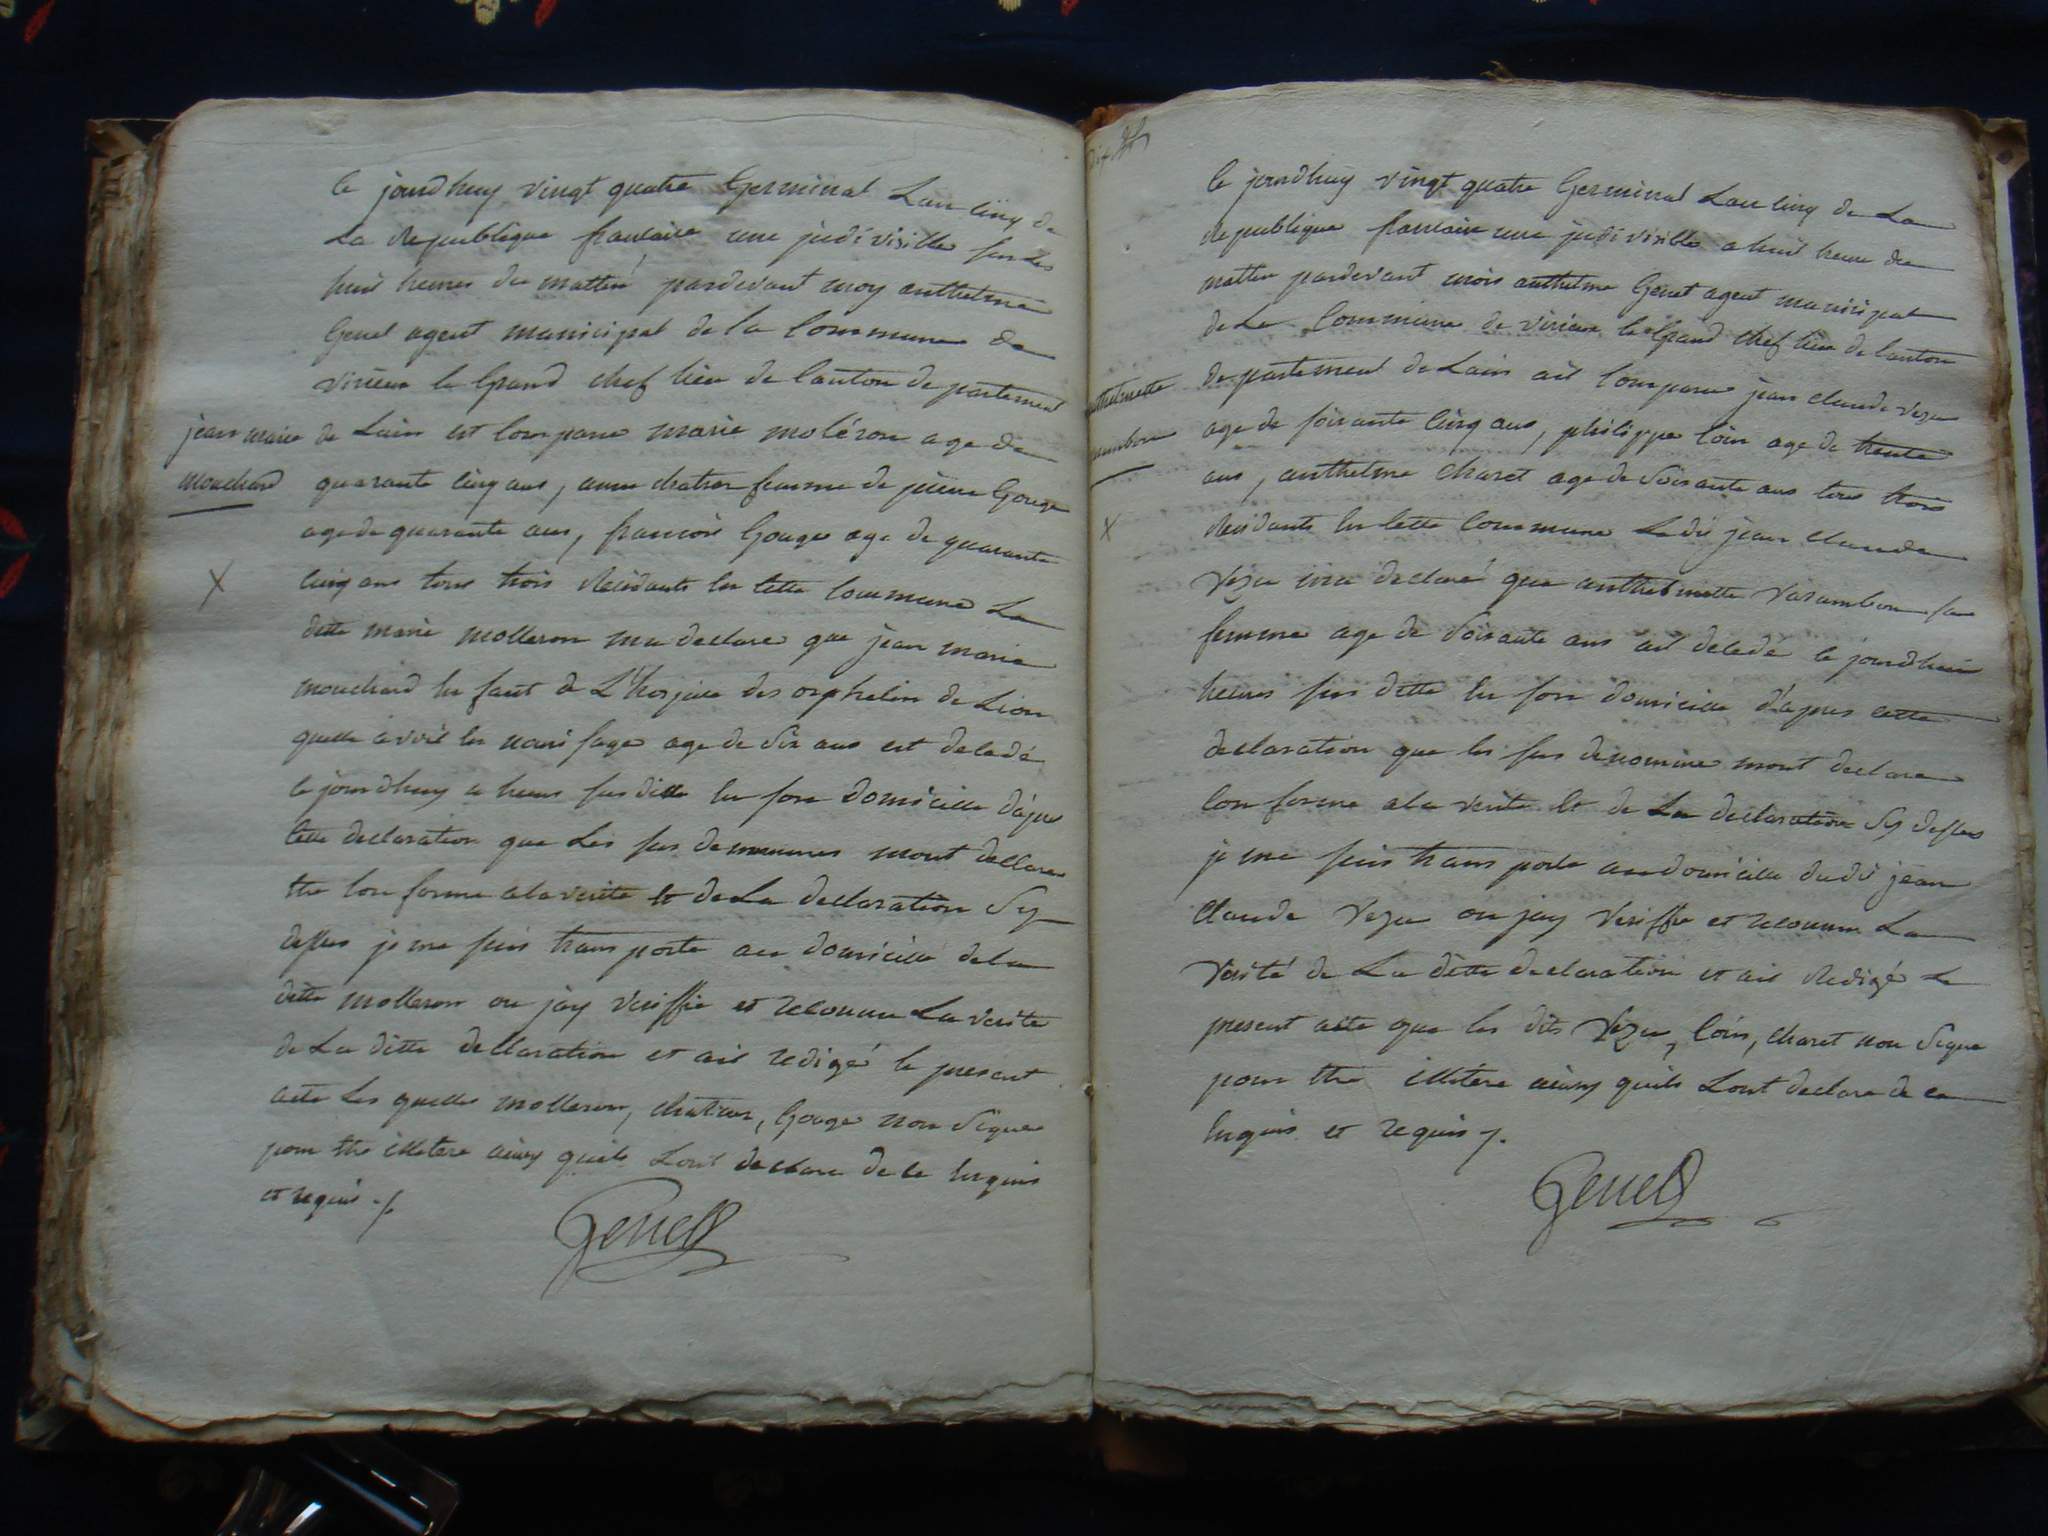 le jourdhuy vingt quatre Germinal Lan cinq de
La Republique francaise une judivisille sur Les
huit heures du mattin pardevant moy anthelme
Genet agent municipal de la Commune de
virieux le Grand chef lieu de Canton departement
jean marie
mouchard
de Lain est Compana marie moléron age de
quarante cinq ans, anne chatron femme de pierre Gouge
age de quarante ans, francois Gouge age de quarante
X
cinq ans tous trois Residants en cette Commune La
ditte marie molleron ma declare que jean marie
mouchard en fant de L'hospice des orphelin de Lion
quelle avoit en nourisage age de Six ans est decedé
le jourdhuy a heures susditte en son domicille d'apres
cette declaration que Les sus denommes mont declare
etre Con forme a la verite et de La declaration Sy
dessus je me suis transporte au domicille de la
ditte molleron ou jay veriffie et reconnu La verite
de La ditte declaration et ait redigé le present
acte Les quelles molleron, chatron, Gouge non Signe
pour etre illetere ainsy quils Lont declare de ce Enquis
et requis ./.
Genet
le jourdhuy vingt quatre Germinal Lan cinq de La
Republique francaise une judivisille a huit heure du
mattin pardevant mois anthelme Genet agent municipal
de La Commune de virieux le Grand chef lieu de Canton
anthelmette
varambon
departement de Lain ait Comparu jean claude vezu
age de soixante cinq ans, philippe Coin age de trente
ans, anthelme charet age de Soixante ans tous trois
X
Residants en cette Commune Ledit jean claude
vezu ma declaré que anthelmette varambon sa
femme age de Soixante ans ait decede le jourdhuit
heures sus ditte en son domicille d'apres cette
declaration que les sus denomine mont declare
Con forme a la verite et de La declaration Sy dessus
je me suis trans porte au domicille dudit jean
claude vezu ou jay veriffie et reconnu La
verité de La ditte declaration et ait Redigé Le
present acte que les dits vezu, Coin, charet non Signe
pour etre illetere ainsy quils Lont declare de ce
Enquis et requis ./.
Genet